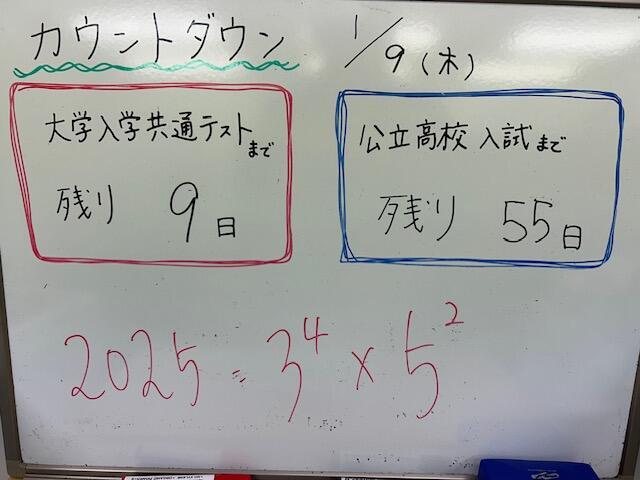 カウントダウン
1/9(木)
大学入学共通テストまで
残り 9日
公立高校入試まで
残り 55日
2025 = 3⁴ × 5²